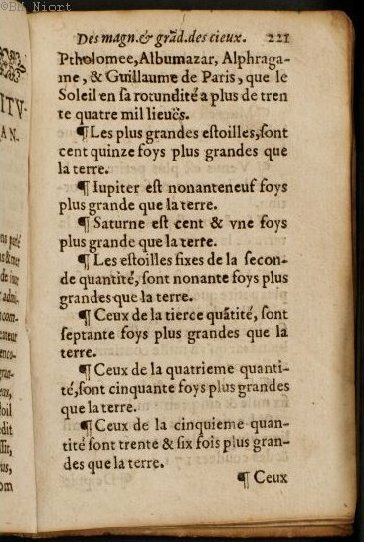 ©BM Niort
Des magn.& grād.des cieux. 221
Ptholomee, Albumazar, Alphraga-
me, & Guillaume de Paris, que le
Soleil en sa rotundité a plus de tren
te quatre mil lieuës.
¶ Les plus grandes estoilles, sont
cent quinze foys plus grandes que
la terre.
¶ Iupiter est nonanteneuf foys
plus grande que la terre.
¶ Saturne est cent & vne foys
plus grande que la terre.
¶ Les estoilles fixes de la secon-
de quantité, sont nonante foys plus
grandes que la terre.
¶ Ceux de la tierce quātité, sont
septante foys plus grandes que la
terre.
¶ Ceux de la quatrieme quanti-
té, sont cinquante foys plus grandes
que la terre.
¶ Ceux de la cinquieme quan-
tité sont trente & six fois plus gran-
des que la terre.
¶ Ceux